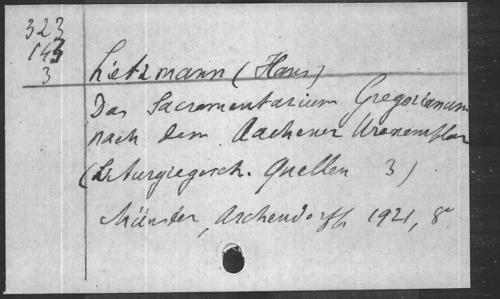 323
143
3
Lietzmann (Hans)
Das Sacramentarium Gregorianum
nach dem Aachener Urexemplar
(Liturgiegesch. Quellen 3)
Münster, Aschendorff 1921, 8°